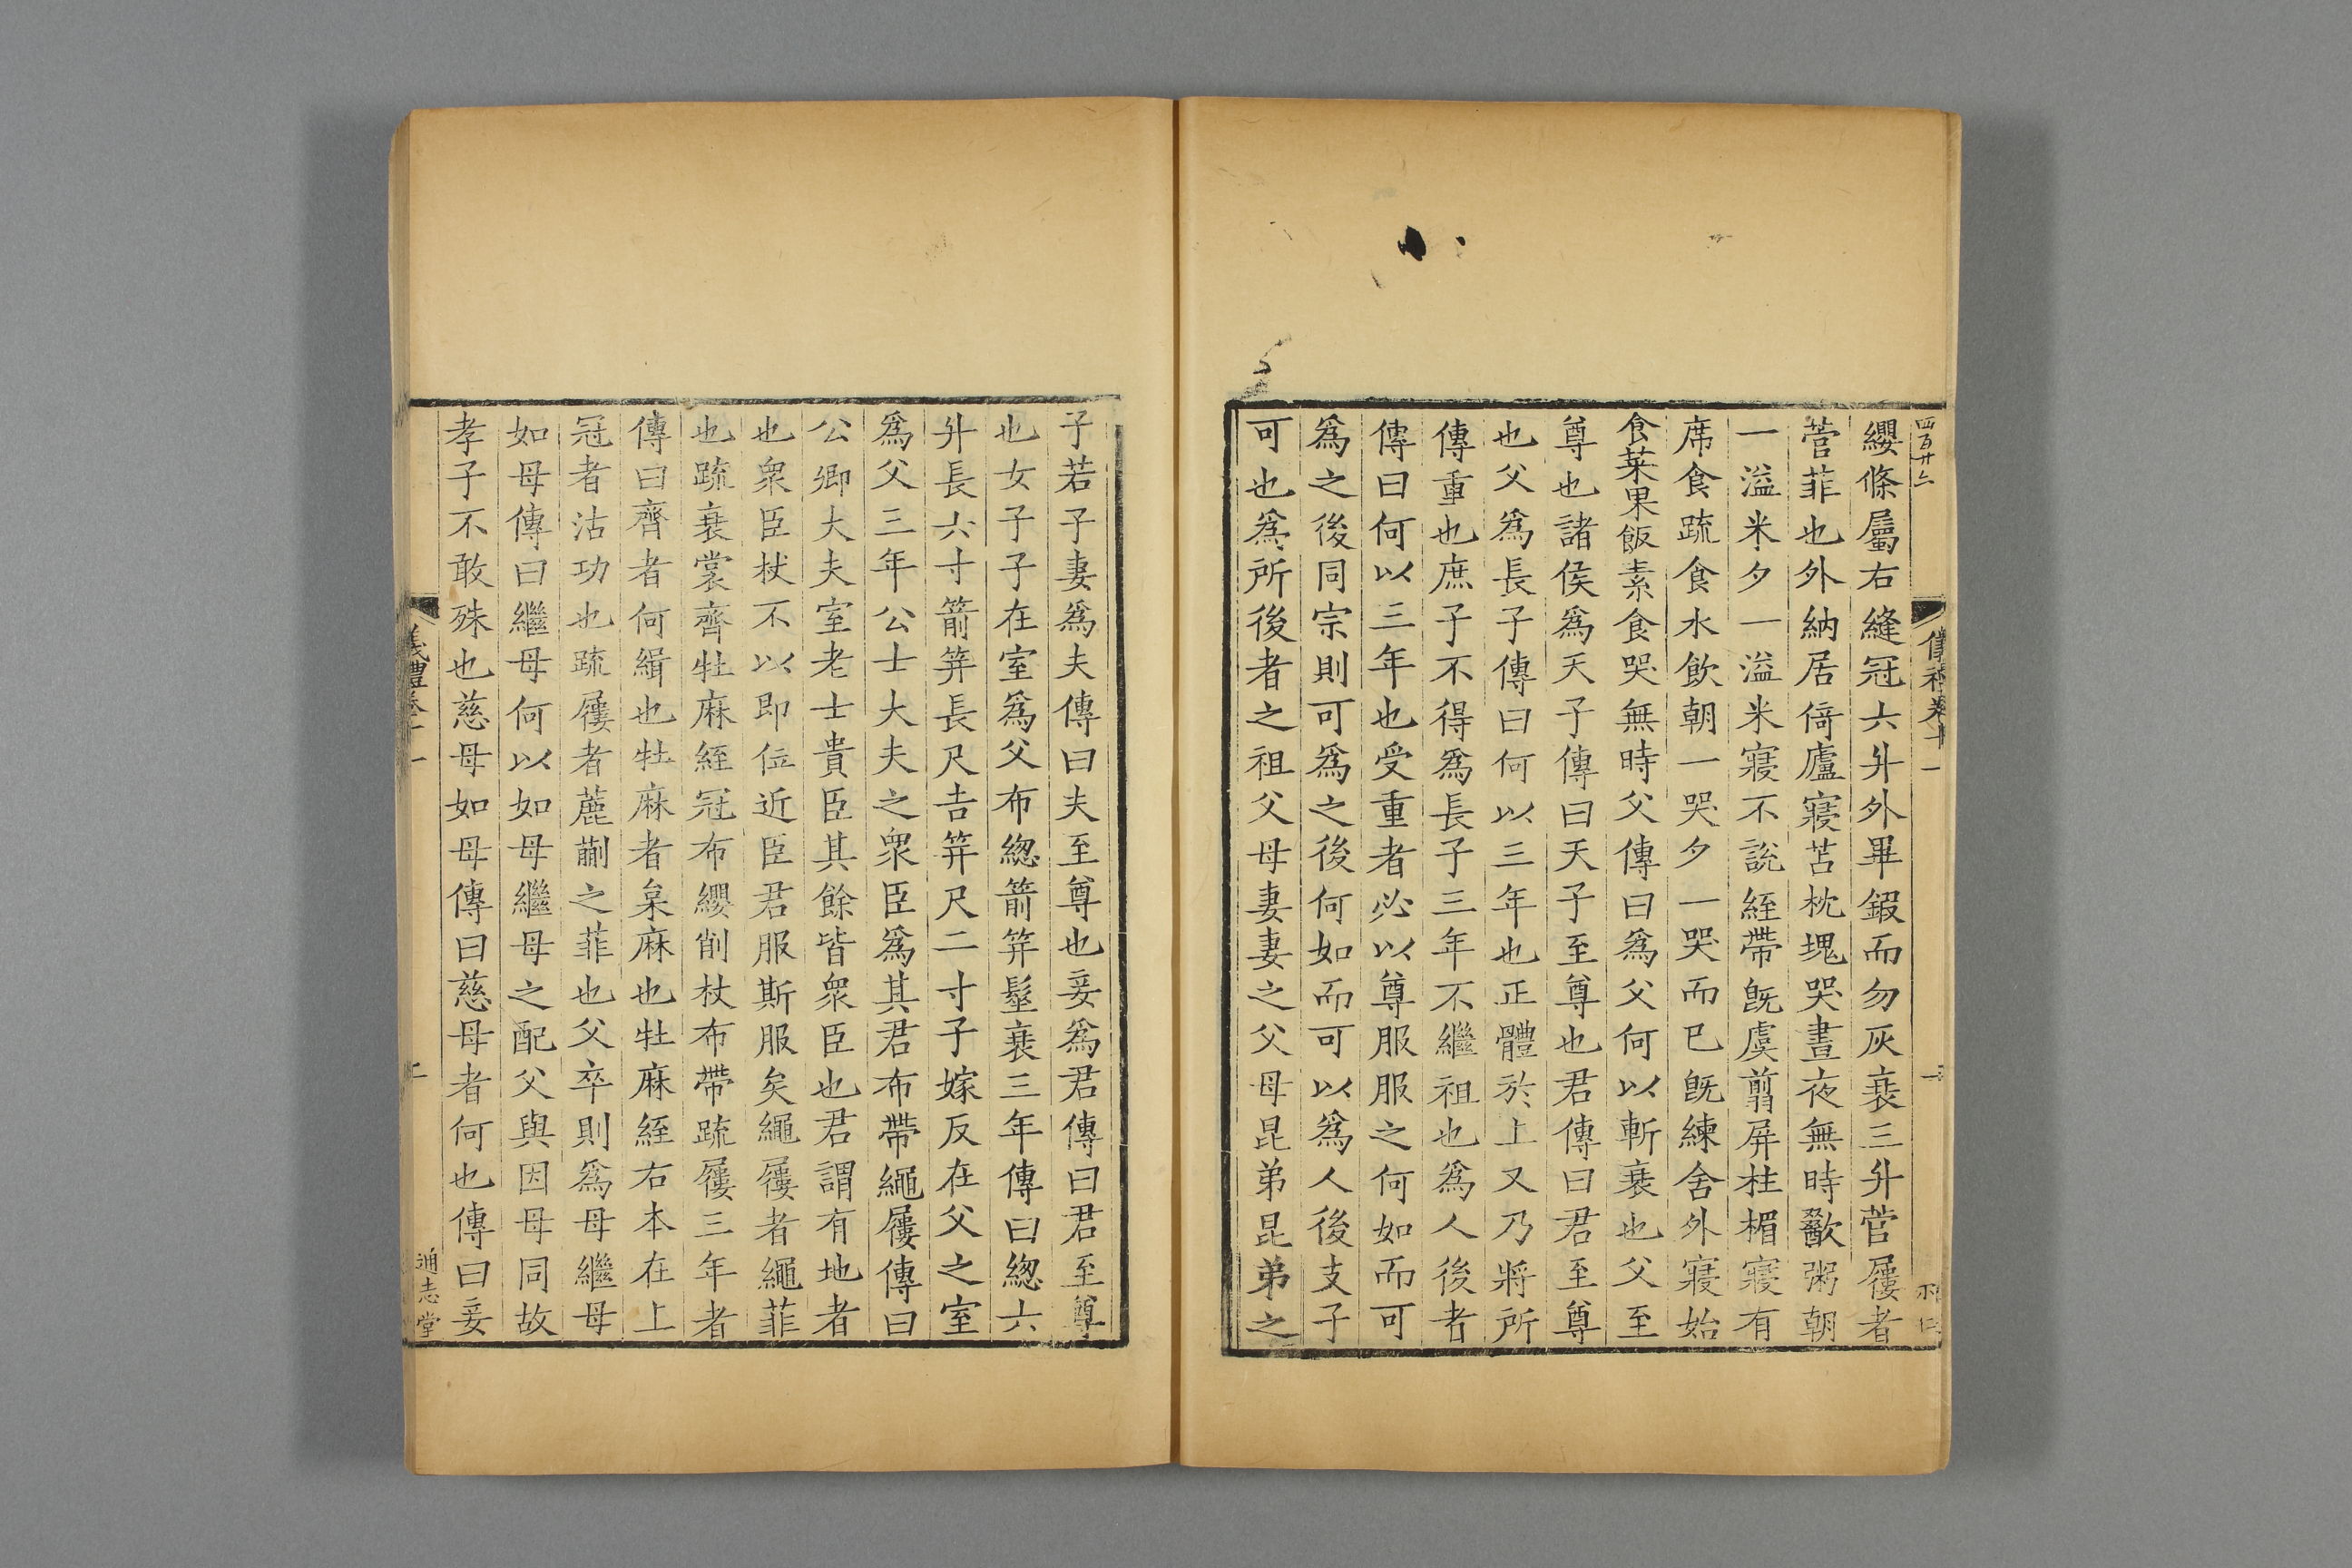 儀禮卷十一
纓條屬右縫冠六升外畢鍜而勿灰衰三升菅屨者
菅菲也外納居倚廬寢苫枕塊哭晝夜無時歠粥朝
一溢米夕一溢米寢不說絰帶旣虞翦屏柱楣寢有
席食疏食水飲朝一哭夕一哭而已旣練舍外寢始
食菜果飯素食哭無時父傳曰爲父何以斬衰也父至
尊也諸侯爲天子傳曰天子至尊也君傳曰君至尊
也父爲長子傳曰何以三年也正體於上又乃將所
傳重也庶子不得爲長子三年不繼祖也爲人後者
傳曰何以三年也受重者必以尊服服之何如而可
爲之後同宗則可爲之後何如而可以爲人後支子
可也爲所後者之祖父母妻妻之父母昆弟昆弟之
子若子妻爲夫傳曰夫至尊也妾爲君傳曰君至尊
也女子子在室爲父布緫箭筓髽衰三年傳曰緫六
升長六寸箭筓長尺吉筓尺二寸子嫁反在父之室
爲父三年公士大夫之衆臣爲其君布帶繩屨傳曰
公卿大夫室老士貴臣其餘皆衆臣也君謂有地者
也衆臣杖不以即位近臣君服斯服矣繩屨者繩菲
也疏衰裳齊牡麻絰冠布纓削杖布帶疏屨三年者
傳曰齊者何緝也牡麻者枲麻也牡麻絰右本在上
冠者沽功也疏屨者藨蒯之菲也父卒則爲母繼母
如母傳曰繼母何以如母繼母之配父與因母同故
孝子不敢殊也慈母如母傳曰慈母者何也傳曰妾
儀禮卷十一
二
通志堂